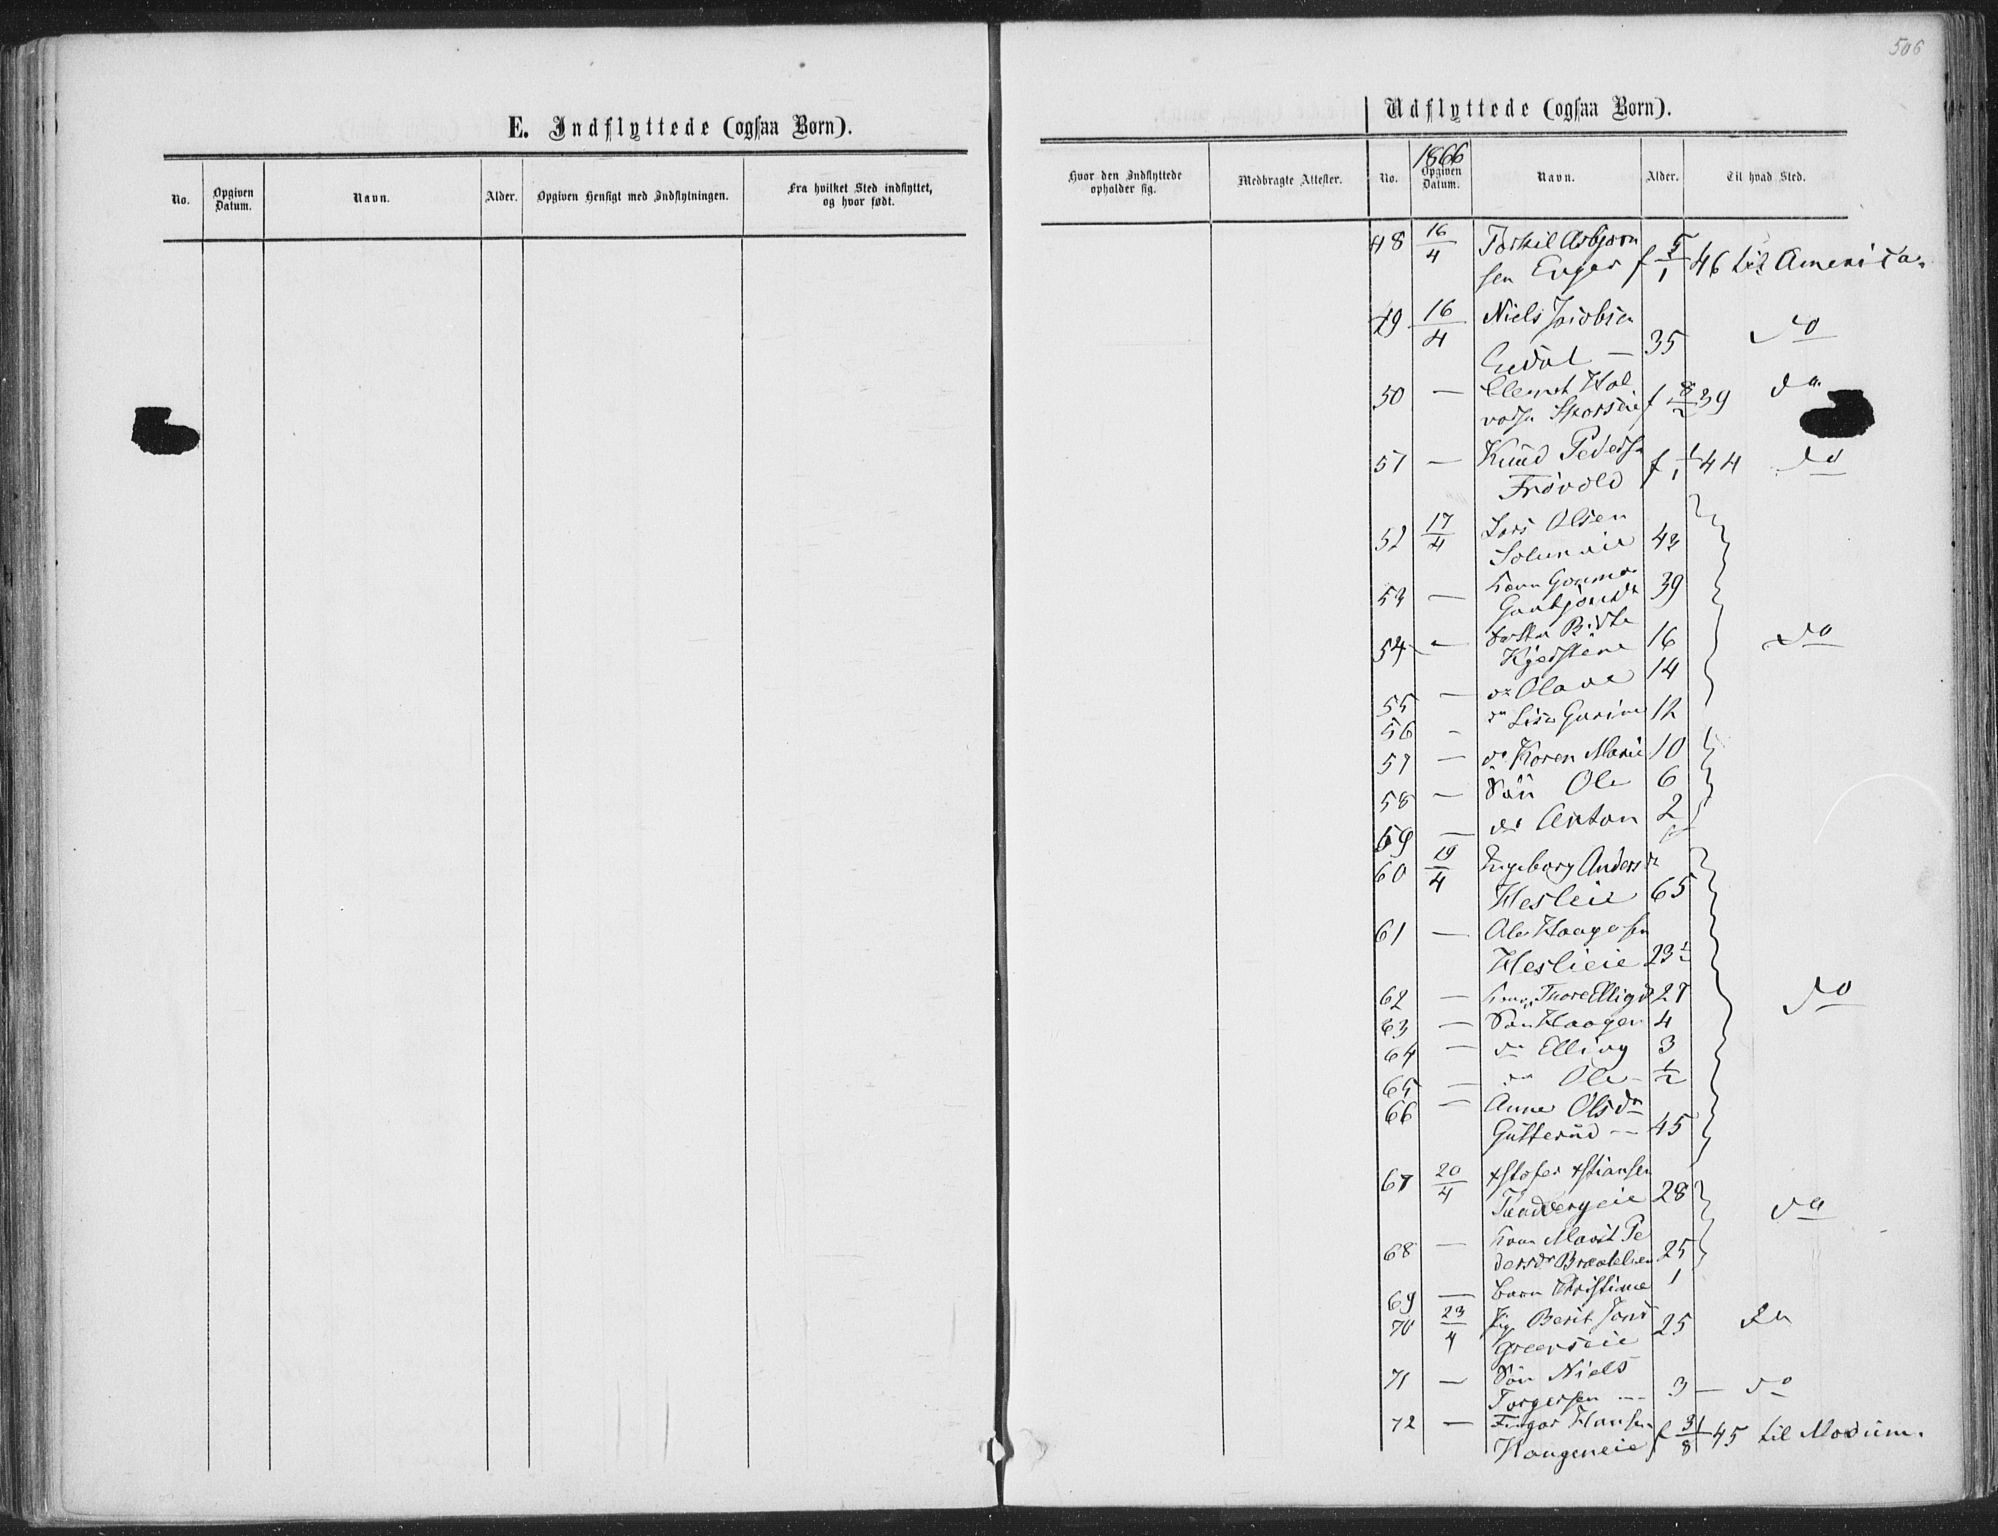 506
E. Indflyttede (ogsaa Børn).
No. Opgiven Datum. Navn. Alder. Opgiven Hensigt med Indflytningen. Fra hvilket Sted indflyttet, og hvor født.
Udflyttede (ogsaa Børn).
Hvor den Indflyttede opholder sig. Medbragte Attester. No. 1866 Opgiven Datum. Navn. Alder. Til hvad Sted.
48 16/4 Torkil Asbjørn
sen Enger f 5/1 46 til America.
49 16/4 Niels Jacobsen
35 do
50 — Clemet Hal
vorsen f 8/2 39 do
51 — Knud Pedersen
Frøvold f 1/1 44 do
52 17/4 Lars Olsen
Solumeie 43
53 — Kone Gunnor
39
54 — Datter Birte
Kjerstine 16 do
55 — do Olave 14
56 - do Lise Gurine 12
57 — do Karen Marie 10
58 — Søn Ole 6
59 — do Anton 2
60 19/4 Ingeborg Andersdr
Hesleie 65
61 — Ole Haagensen
Heslieie 23 1/2
62 — Kone Thore Ellingsd 27 do
63 — Søn Haagen 4
64 — do Elling 3
65 — do Ole - 1/2
66 — Anne Olsdr
Gutterud — 45
67 20/4 Xstofer Xstiansen
Tandbergeie 28 do
68 — Kone Marit Pe
dersdr 25
69 — Barn Christiane 1
70 23/4 Pig Berit Jons
25 do
71 — Søn Niels
Torgersen — 3 — do
72 — Hansen
Haugeneie f 31/8 45 til Modum.